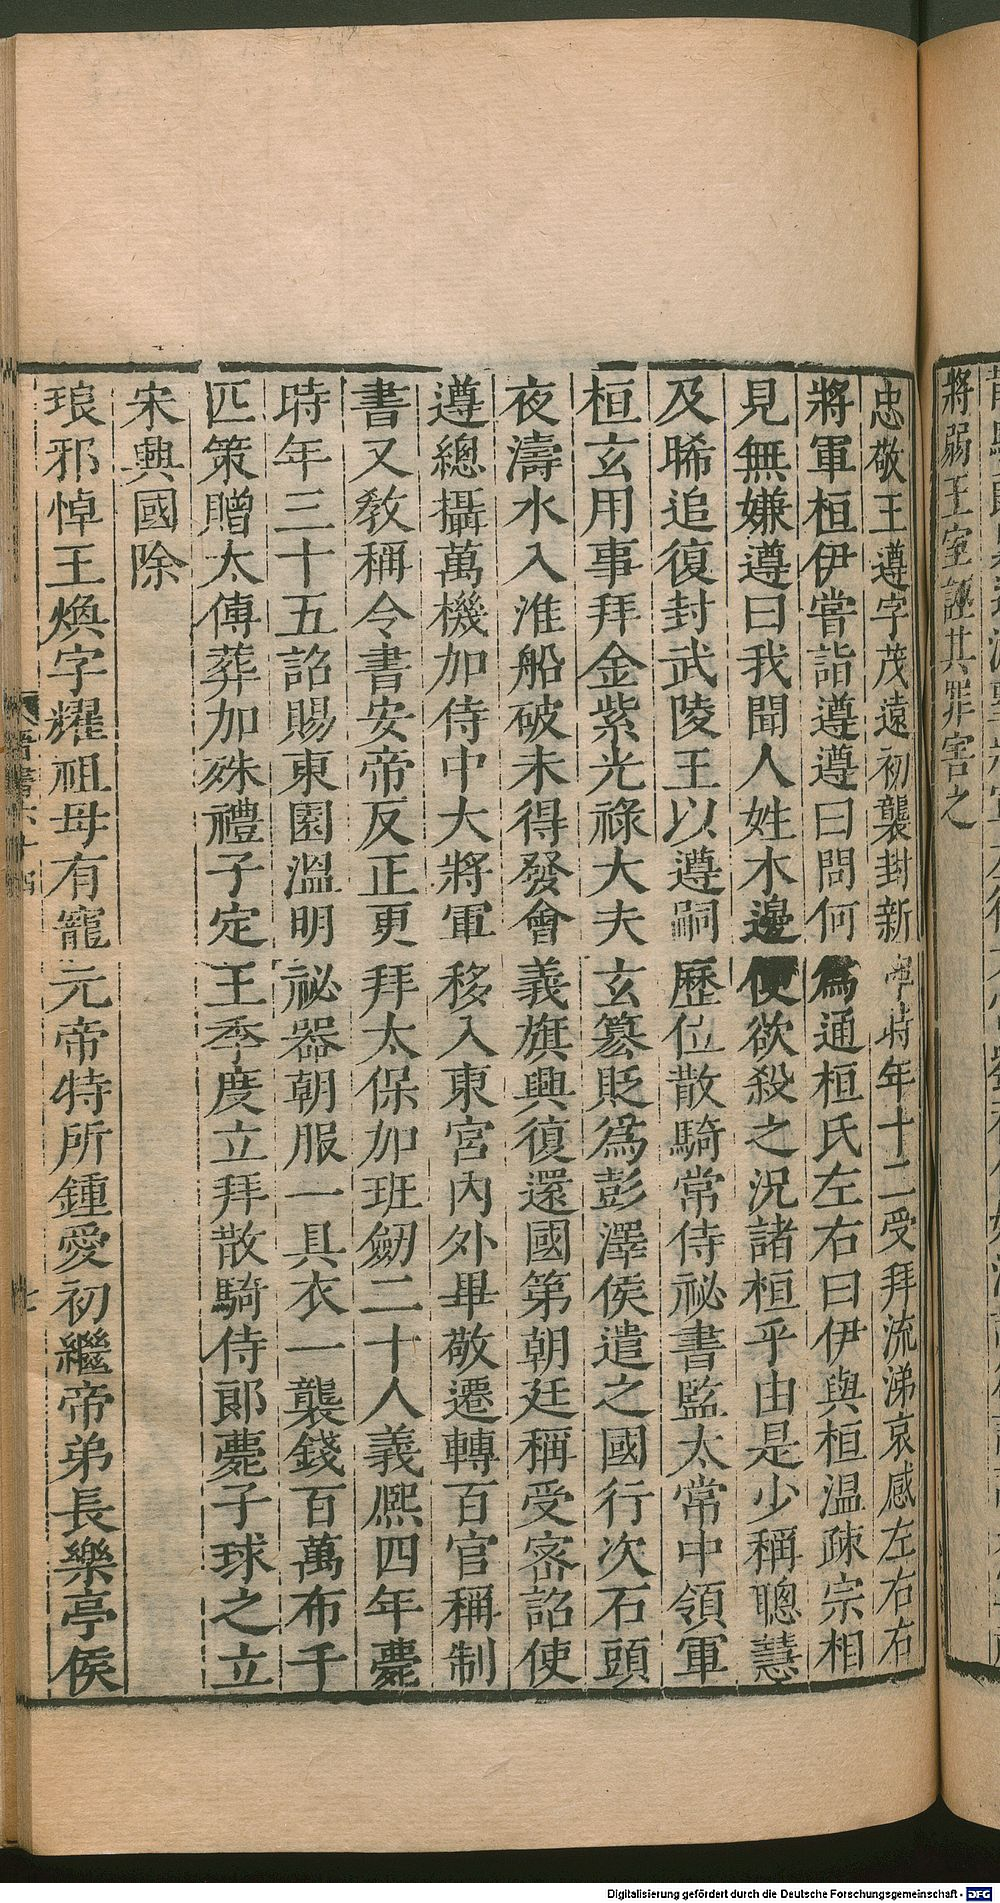 將弱王室誣其罪害之
忠敬王遵字茂遠初襲封新寧時年十二受拜流涕哀感左右右
將軍桓伊嘗詣遵遵曰門何爲通桓氏左右曰伊與桓溫疎宗相
見無嫌遵曰我聞人姓木邊便欲殺之況諸桓乎由是少稱聰慧
及晞追復封武陵王以遵嗣歷位散騎常侍祕書監太常中領軍
桓玄用事拜金紫光祿大夫玄簒貶爲彭澤侯遣之國行次石頭
夜濤水入淮船破未得發會義旗興復還國第朝廷稱受密詔使
遵總攝萬機加侍中大將軍移入東宮內外畢敬遷轉百官稱制
書又教稱令書安帝反正更拜太保加班劒二十人義熈四年薨
時年三十五詔賜東園溫明祕器朝服一具衣一襲錢百萬布千
匹策贈太傅葬加殊禮子定王季度立拜散騎侍郎薨子球之立
宋興國除
琅邪悼王煥字耀祖母有寵元帝特所鍾愛初繼帝弟長樂亭侯
Digitalisierung gefördert durch die Deutsche Forschungsgemeinschaft - DFG